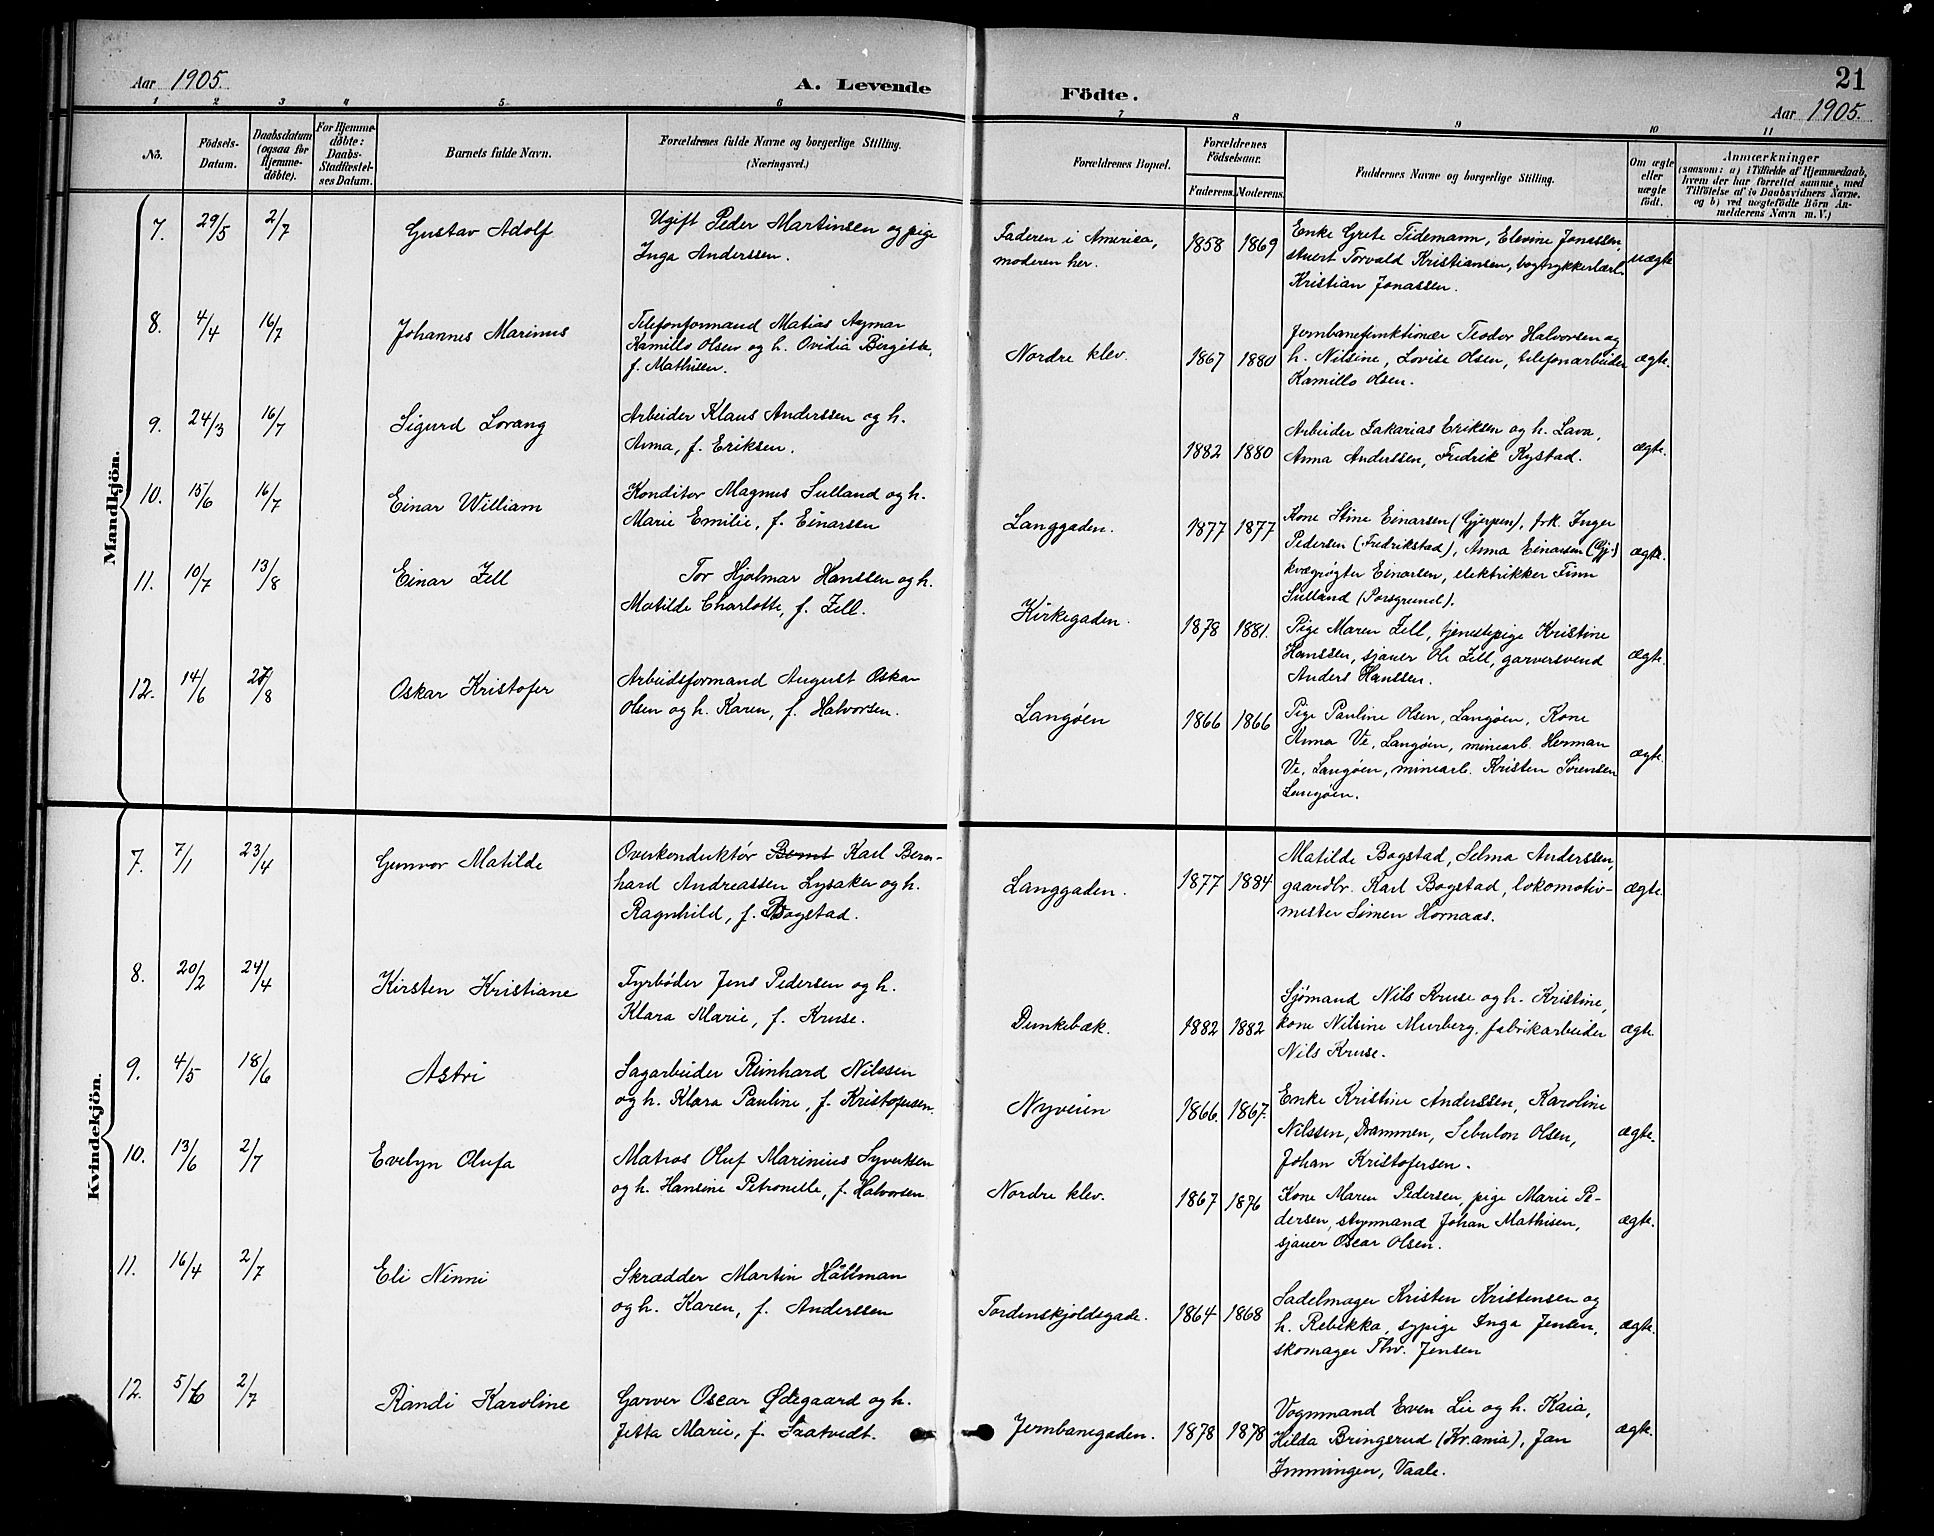 Aar 1905.
A. Levende
Födte.
21
Aar 1905.
1 2 3 4 5 6 7 8 9 10 11
No.
Födsels-Datum.
Daabsdatum (ogsaa for Hjemme-døbte).
For Hjemme-døbte: Daabs-Stadfæstel-ses Datum.
Barnets fulde Navn.
Forældrenes fulde Navne og borgerlige Stilling.
(Næringsvei.)
Forældrenes Bopæl.
Forældrenes Födselsaar.
Faderens. Moderens.
Faddernes Navne og borgerlige Stilling.
Om ægte eller uægte födt.
Anmærkninger
(saasom: a) i Tilfælde af Hjemmedaab,
hvem der har forrettet samme, med
Tilföielse af to Daabsvidners Navne.
og b) ved uægtefödte Börn An-
melderens Navn m. V.)
Mandkjön.
7. 29/5 2/7 Gustav Adolf
Ugift Peder Martinsen og pige
Inga Anderssen.
Faderen i America,
moderen her.
1858 1869
Enke Grete Tidemann, Elevine Jonassen,
stuert Torvald Kristiansen, bogtrykkerlærl.
Kristian Jonassen.
uægte
8. 4/4 16/7 Johannes Marinus
Telefonformand Matias Aymar
Kamillo Olsen og h. Ovidia Birgitte,
f. Mathisen.
Nordre klev.
1867 1880
Jernbanefunktionær Teodor Halvorsen og
h. Nilsine, Lovise Olsen, telefonarbeider
Kamillo Olsen.
ægte.
9. 24/3 16/7 Sigurd Lorang
Arbeider Klaus Anderssen og h.
Anna, f. Eriksen.
1882 1880
Arbeider Zakarias Eriksen og h. Lava,
Anna Anderssen, Fredrik Kystad.
ægte.
10. 15/6 16/7 Einar William
Konditor Magnus Sulland og h.
Marie Emilie, f. Einarsen
Langgaden.
1877 1877
Kone Stine Einarsen (Gjerpen), frk. Inger
Pedersen (Fredrikstad), Anna Einarsen (Gj.)
kvægrøgter Einarsen, elektrikker Finn
Sulland (Porsgrund).
ægte.
11. 10/7 13/8 Einar Zell
Tor Hjalmar Hanssen og h.
Matilde Charlotte, f. Zell.
Kirkegaden.
1878 1881.
Pige Maren Zell, tjenestepige Kristine
Hanssen, sjauer Ole Zell, garversvend
Anders Hanssen.
ægte.
12. 14/6 27/8 Oskar Kristofer
Arbeidsformand August Oskar
Olsen og h. Karen, f. Halvorsen.
Langøen
1866 1866
Pige Pauline Olsen, Langøen, Kone
Anna Ve, Langøen, minearb. Herman
Ve, Langøen, minearb. Kristen Sørensen
Langøen.
ægte.
Kvindekjön.
7. 7/1 23/4 Gunvor Matilde
Overkonduktør Bernt Karl Bern-
hard Andreassen Lysaker og h.
Ragnhild, f. Bogstad.
Langgaden.
1877 1884
Matilde Bogstad, Selma Anderssen,
gaardbr. Karl Bogstad, lokomotiv-
mester Simen Hornaas.
ægte.
8. 20/2 24/4 Kirsten Kristiane
Fyrbøder Jens Pedersen og h.
Klara Marie, f. Kruse.
Dunkebæk.
1882 1882
Sjømand Nils Kruse og h. Kristine,
kone Nilsine Murberg, fabrikarbeider
Nils Kruse.
ægte.
9. 4/5 18/6 Astri
Sagarbeider Reinhard Nilssen
og h. Klara Pauline, f. Kristofersen.
Nyveien
1866. 1867.
Enke Kristine Anderssen, Karoline
Nilssen, Drammen, Sebulon Olsen,
Johan Kristofersen.
ægte.
10. 13/6 2/7 Evelyn Olufa
Matros Oluf Marinius Syvertsen
og h. Hansine Petronelle, f. Halvorsen
Nordre klev.
1867 1876
Kone Maren Pedersen, pige Marie Pe-
dersen, styrmand Johan Mathisen,
sjauer Oscar Olsen.
ægte.
11. 16/4 2/7 Eli Ninni
Skrædder Martin Hållman
og h. Karen, f. Anderssen
Tordenskjoldsgade.
1864 1868
Sadelmager Kristen Kristensen og
h. Rebekka, sypige Inga Jensen,
skomager Thv. Jensen
ægte.
12. 5/6 2/7 Randi Karoline
Garver Oscar Ødegaard og h.
Jetta Marie, f. Tratvedt.
Jernbanegaden.
1878 1878
Vognmand Even Lie og h. Kaia,
Hilda Bringerud (Kr.ania), Jan
Immingen, Vaale.
ægte.